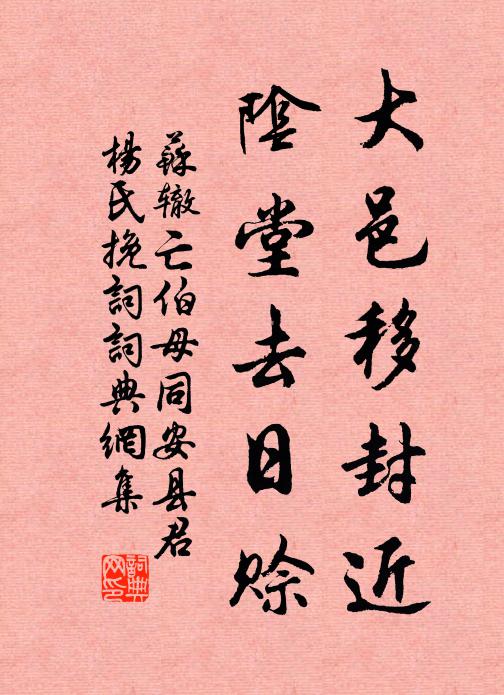 大邑移封近
陰堂去日赊
蘇辙亡伯母同安县君
楊氏挽詞詞典網集
詞典
网印